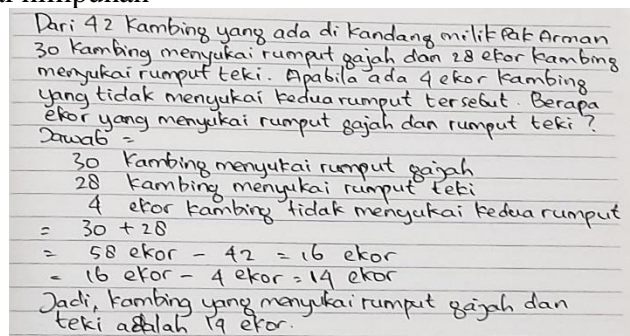 Dari 42 Kambing yang ada di Kandang milik Pak Arman
30 Kambing menyukai rumput gajah dan 28 ekor kambing
menyukai rumput teki. Apabila ada 4 ekor kambing
yang tidak menyukai kedua rumput tersebut. Berapa
ekor yang menyukai rumput gajah dan rumput teki ?
Jawab =
30 Kambing menyukai rumput gajah
28 Kambing menyukai rumput teki
4 ekor kambing tidak menyukai kedua rumput
= 30 + 28
= 58 ekor - 42 = 16 ekor
= 16 ekor - 4 ekor = 14 ekor
Jadi, kambing yang menyukai rumput gajah dan
teki adalah 14 ekor.